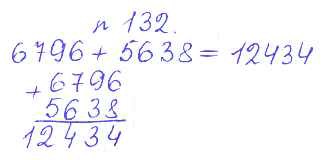 п 132.
6796 + 5638 = 12434
+ 6796
5638
12434